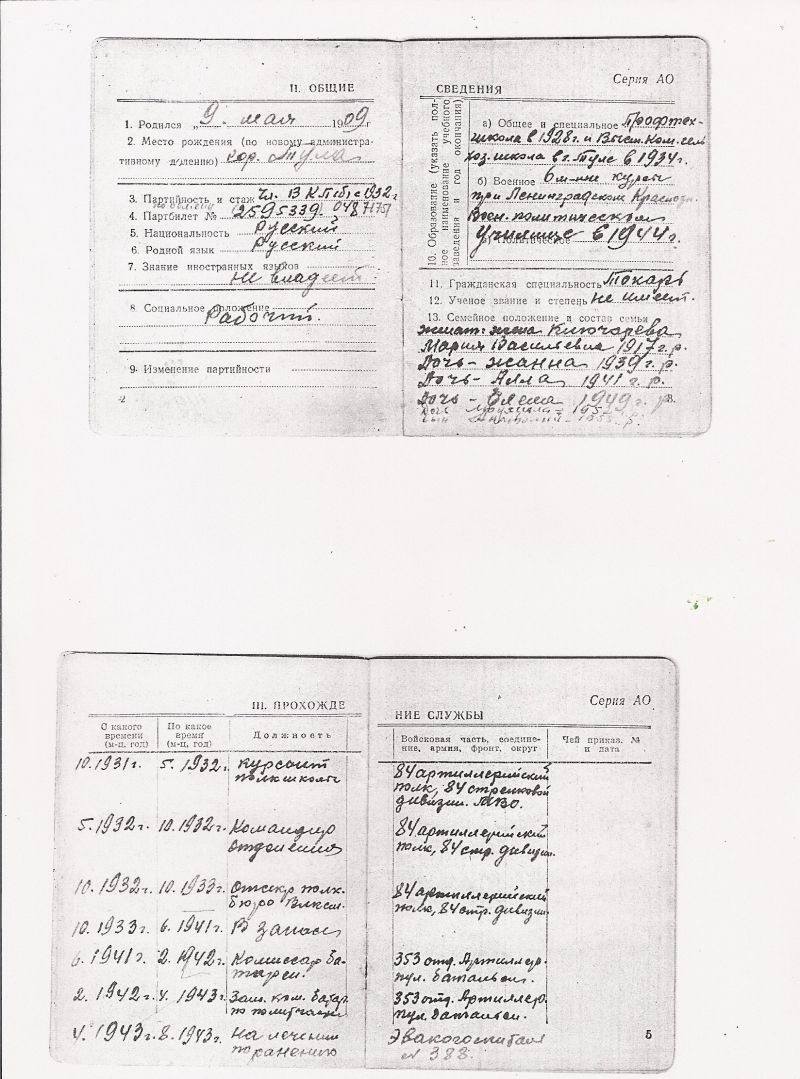 II. ОБЩИЕ
1. Родился „9." мая 1909 г
2. Место рождения (по новому администра-
тивному делению) гор. Тула
3. Партийность и стаж Чл. ВКП(б) с 1932 г
4. Партбилет № 2595339
5. Национальность Русский
6. Родной язык Русский
7. Знание иностранных языков
Не владеет.
8. Социальное положение
Рабочий.
9. Изменение партийности
2
Серия АО
СВЕДЕНИЯ
10. Образование (указать пол-
ное наименование учебного
заведения и год окончания)
а) Общее и специальное Профтех-
школа в 1928г. и Высш. Ком. сель
хоз. школа в г. Туле в 1934г.
б) Военное 6 м-чные курсы
при Ленинградском Краснозн.
Воен. политическом
Училище в 1944г.
в) Политическое
11. Гражданская специальность Токарь
12. Ученое звание и степень не имеет.
13. Семейное положение и состав семьи
женат: жена Ключарева
Мария Васильевна 1917 г. р.
Дочь - Жанна 1939 г. р.
Дочь - Алла 1941 г. р.
Дочь - 1949 г. р.
Дочь
3.
III. ПРОХОЖДЕ
С какого времени (м-ц, год) По какое время (м-ц, год) Должность
10.1931г. 5.1932г. Курсант
полкшколы
5.1932г. 10.1932г. Командир
отделения
10.1932г. 10.1933г. Отсекр полк.
бюро Влксм.
10.1933г. 6.1941г. В запасе
6.1941г. 2.1942г. Комиссар ба-
тареи.
2.1942г. 4.1943г. Зам. ком. батар.
по политчасти
4.1943г. 8.1943г. На лечении
по ранению
Серия АО
НИЕ СЛУЖБЫ
Войсковая часть, соедине-
ние, армия, фронт, округ
Чей приказ. №
и дата
84 артиллерийский
полк, 84 стрелковой
дивизии. МВО.
84 артиллерийский
полк, 84 стр. дивизии.
84 артиллерийский
полк, 84 стр. дивизии
353 отд. Артиллер.
пул. батальон.
353 отд. Артиллер.
пул. батальон.
Эвакогоспиталь
N 388.
5